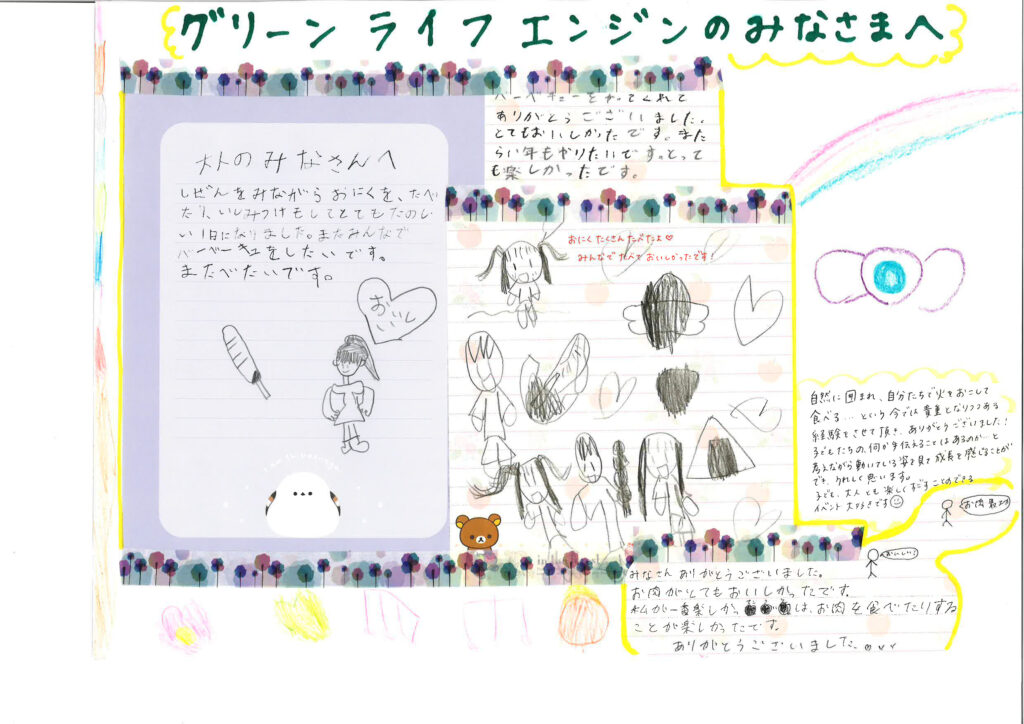 グリーン ライフ エンジンのみなさまへ
バーベキューをやってくれて
ありがとうございました。
とてもおいしかったです。また
らい年もやりたいです。とって
も楽しかったです。
のみなさんへ
しぜんをみながらおにくを、たべ
たり、いしみつけもしてとてもたのし
い1日になりました。またみんなで
バーベーキュをしたいです。
またべたいです。
おいしい
おにくたくさんたべたよ♡
みんなでたべておいしかったです!
自然に囲まれ、自分たちで火をおこして
食べる...という今では貴重となりつつある
経験をさせて頂き、ありがとうございました!
子どもたちの、何か手伝えることはあるのかと
考えながら動いている姿を見て成長を感じることが
でき、うれしく思います。
子ども、大人とも楽しくすごすことのできる
イベント大好きです
お肉最高
おいしい!
みなさんありがとうございました。
お肉がとてもおいしかったです。
私が一番楽しかっ は、お肉を食べたりする
ことが楽しかったです。
ありがとうございました。